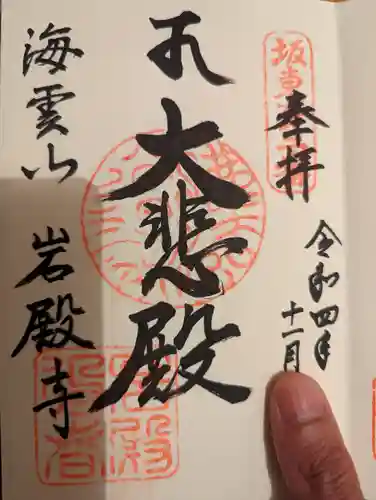 奉拝
令和四年十一月
大悲殿
海雲山
岩殿寺